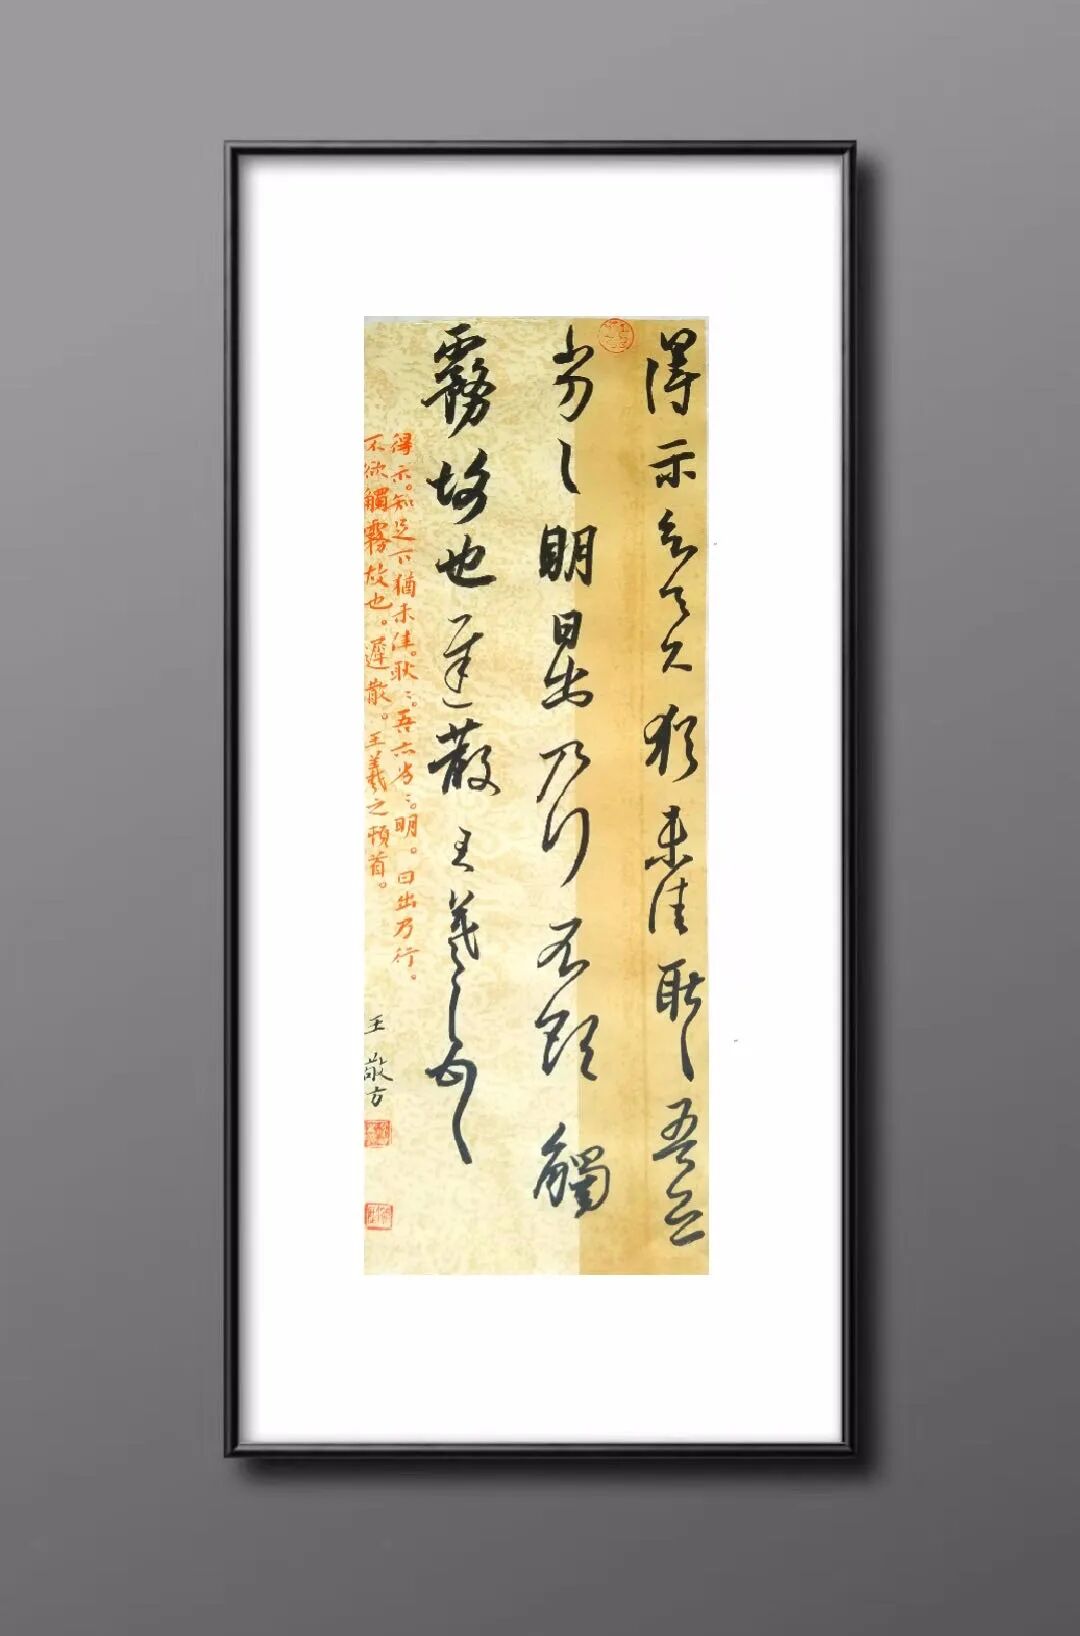 得示知足下犹未佳耿〻吾亦
劣〻明日出乃行不欲觸
霧故也遲散王羲之頓首
得示。知足下猶未佳。耿〻。吾亦劣〻。明。日出乃行。
不欲觸霧故也。遲散。王羲之頓首。
王敬方